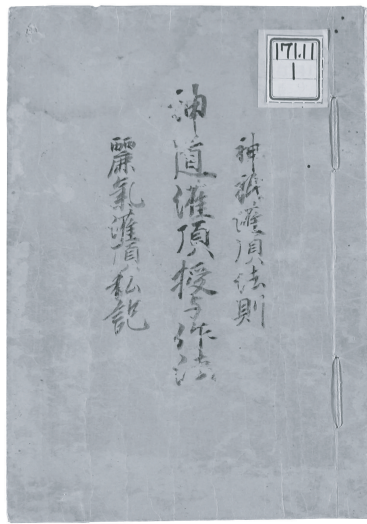 171.11
1
神祇灌頂法則
神道灌頂授与作法
麗氣灌頂私記